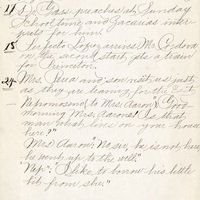 11 S. Glass preaches at Sunday
School time and Jacques inter
prets for him
15 Trifisto Lopez arrives Mr. Cordova
on the second starts sts. a train
for Princeton.
24 Mrs. and son visit us just
as they are leaving for the East
Napomoseno (to Mrs. Aaron) "Good
morning Mrs. Aarons! Is that
man what lives on your house
here?"
Mrs. Aaron: "No sir, he is not here,
he went up to the well."
"Nep": "I like to know his little
bit from she."